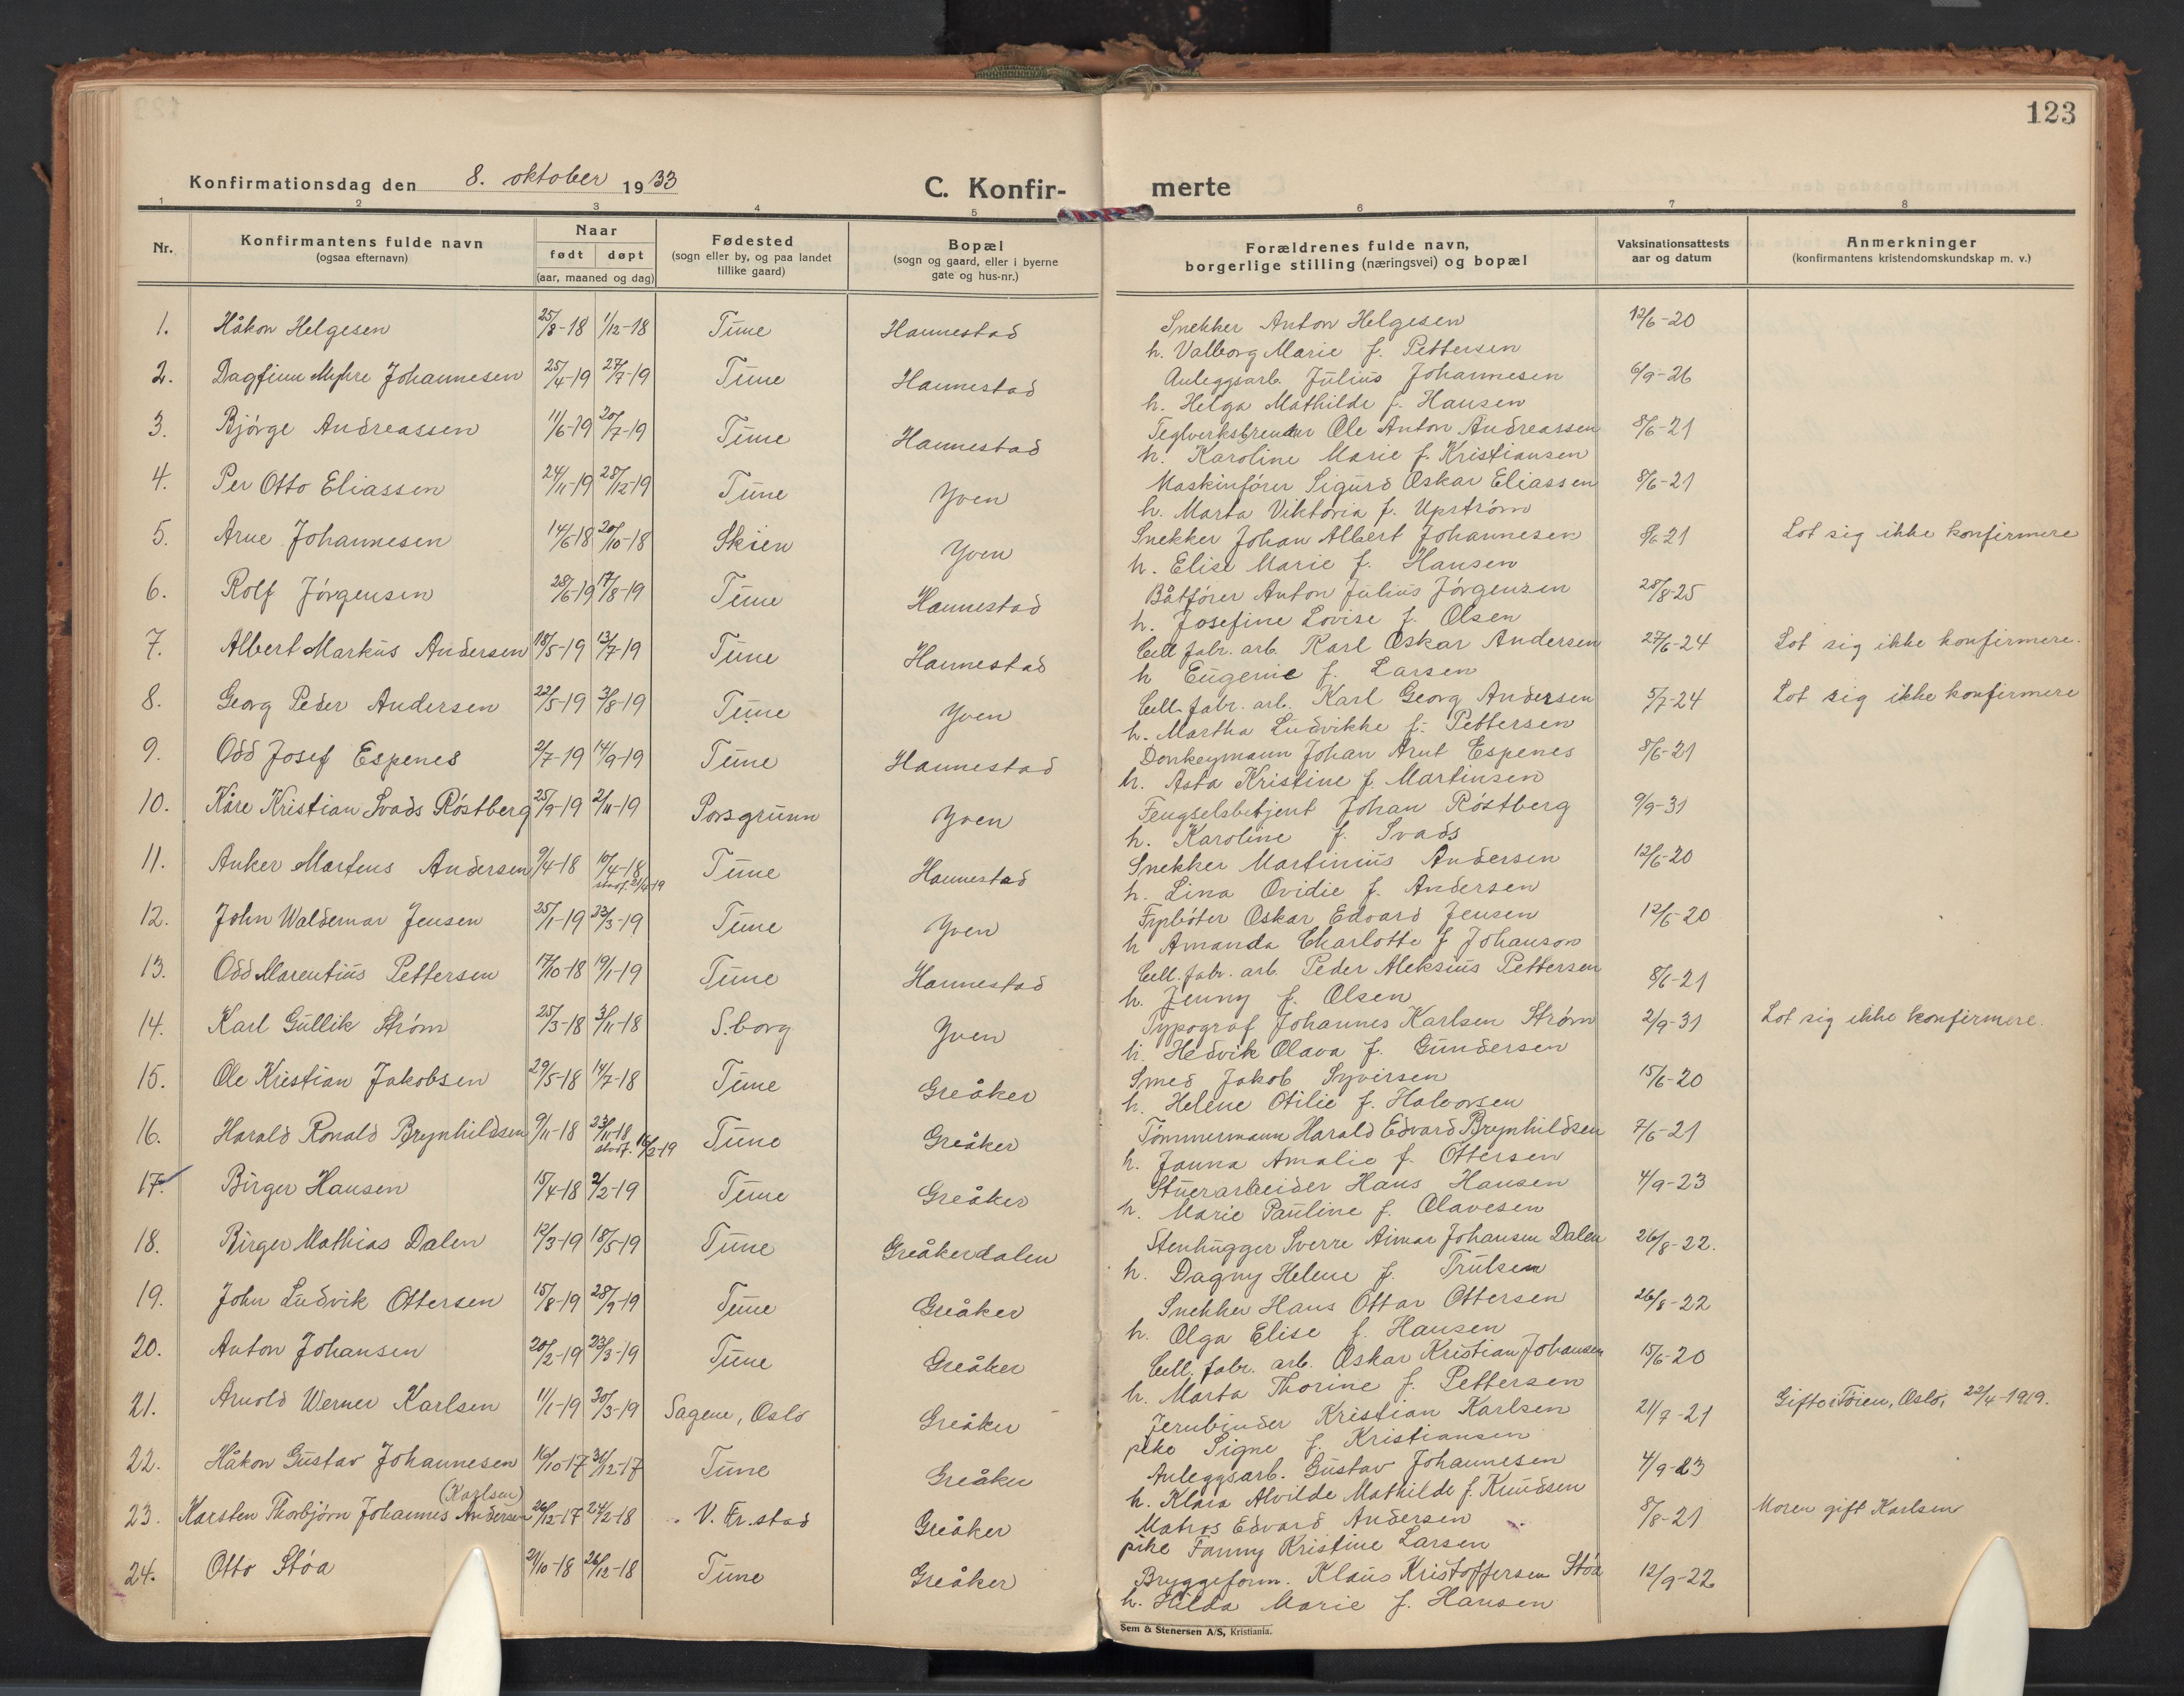 123
Konfirmationsdag den 8. oktober 1933
C. Konfir- merte
1 2 3 4 5 6 7 8
Nr.
Konfirmantens fulde navn
(ogsaa efternavn)
Naar
født døpt
(aar, maaned og dag)
Fødested
(sogn eller by, og paa landet
tillike gaard)
Bopæl
(sogn og gaard, eller i byerne
gate og hus-nr.)
Forældrenes fulde navn,
borgerlige stilling (næringsvei) og bopæl
Vaksinationsattests
aar og datum
Anmerkninger
(konfirmantens kristendomskundskap m. v.)
1. Håkon Helgesen 25/8-18 1/12-18 Tune Hannestad Snekker Anton Helgesen 12/6-20
h. Valborg Marie f. Pettersen
2. Dagfinn Myhre Johannesen 25/4-19 27/7-19 Tune Hannestad Anleggsarb. Julius Johannesen 6/9-26
h. Helga Mathilde f. Hansen
3. Bjørge Andreassen 11/6-19 20/7-19 Tune Hannestad Teglverksbrenner Ole Anton Andreassen 8/6-21
h. Karoline Marie f. Kristiansen
4. Per Otto Eliassen 24/11-19 28/12-19 Tune Yven Maskinfører Sigurd Oskar Eliassen 8/6-21
h. Marta Viktoria f. Upström
5. Arne Johannesen 14/6-18 20/10-18 Skien Yven Snekker Johan Albert Johannesen 8/6-21 Lot sig ikke konfirmere
h. Elise Marie f. Hansen
6. Rolf Jørgensen 28/6-19 17/8-19 Tune Hannestad Båtfører Anton Julius Jørgensen 28/8-25
h. Josefine Lovise f. Olsen
7. Albert Markus Andersen 18/5-19 13/7-19 Tune Hannestad Cell. fabr. arb. Karl Oskar Andersen 27/6-24 Lot sig ikke konfirmere.
h Eugenie f. Larsen
8. Georg Peder Andersen 22/5-19 3/8-19 Tune Yven Cell. fabr. arb. Karl Georg Andersen 5/7-24 Lot sig ikke konfirmere
h. Martha Ludvikke f. Pettersen
9. Odd Josef Espenes 2/7-19 14/9-19 Tune Hannestad Donkeymann Johan Arnt Espenes 8/6-21
h. Asta Kristine f. Martinsen
10. Kåre Kristian Svads Röstberg 25/9-19 2/11-19 Porsgrunn Yven Fengselsbetjent Johan Röstberg 9/9-31
h. Karoline f. Svads
11. Anker Martens Andersen 9/4-18 10/4-18 Tune Hannestad Snekker Martinius Andersen 12/6-20
stadf. 21/4-19
h. Lina Ovidie f. Andersen
12. John Waldemar Jensen 25/1-19 23/3-19 Tune Yven Fyrbøter Oskar Edvard Jensen 12/6-20
h Amanda Charlotte f Johanson
13. Odd Marentius Pettersen 17/10-18 19/1-19 Tune Hannestad Cell. fabr. arb. Peder Aleksius Pettersen 8/6-21
h. Jenny f. Olsen
14. Karl Gullik Strøm 25/3-18 3/11-18 S.borg Yven Typograf Johannes Karlsen Strøm 2/9-31 Lot sig ikke konfirmere.
h. Hedvik Olava f. Gundersen
15. Ole Kristian Jakobsen 29/5-18 14/7-18 Tune Greåker Smed Jakob Syversen 15/6-20
h. Helene Otilie f. Halvorsen
16. Harald Ronald Brynhildsen 9/11-18 23/11-18 Tune Greåker Tömmermann Harald Edvard Brynhildsen 7/6-21
stadf. 16/2-19
h. Janna Amalie f. Ottersen
17. Birger Hansen 15/4-18 2/2-19 Tune Greåker Stuerarbeider Hans Hansen 4/9-23
h. Marie Pauline f. Olavesen
18. Birger Mathias Dalen 12/3-19 18/5-19 Tune Greåkerdalen Stenhugger Sverre Aimar Johansen Dalen 26/8-22.
h. Dagny Helene f. Trulsen
19. John Ludvik Ottersen 15/8-19 28/9-19 Tune Greåker Snekker Hans Ottar Ottersen 26/8-22
h. Olga Elise f. Hansen
20. Anton Johansen 20/2-19 23/3-19 Tune Greåker Cell. fabr. arb. Oskar Kristian Johansen 15/6-20
h. Marta Thorine f. Pettersen
21. Arnold Werner Karlsen 1/1-19 30/3-19 Sagene, Oslo Greåker Jernbinder Kristian Karlsen 21/7-21 Gift i Töien, Oslo, 22/4-1919.
pike Signe f. Kristiansen
22. Håkon Gustav Johannesen 16/10-17 31/12-17 Tune Greåker Anleggsarb. Gustav Johannesen 4/9-23
h. Klara Alvilde Mathilde f. Knudsen
(Karlsen)
23. Karsten Thorbjørn Johannes Andersen 26/12-17 24/2-18 V. Fr.stad Greåker Matros Edvard Andersen 8/8-21 Moren gift Karlsen
pike Fanny Kristine Larsen
24. Otto Støa 21/10-18 26/12-18 Tune Greåker Bryggeform. Klaus Kristoffersen Stöa 12/9-22
h. Hilda Marie f. Hansen
Sem & Stenersen A/S, Kristiania.